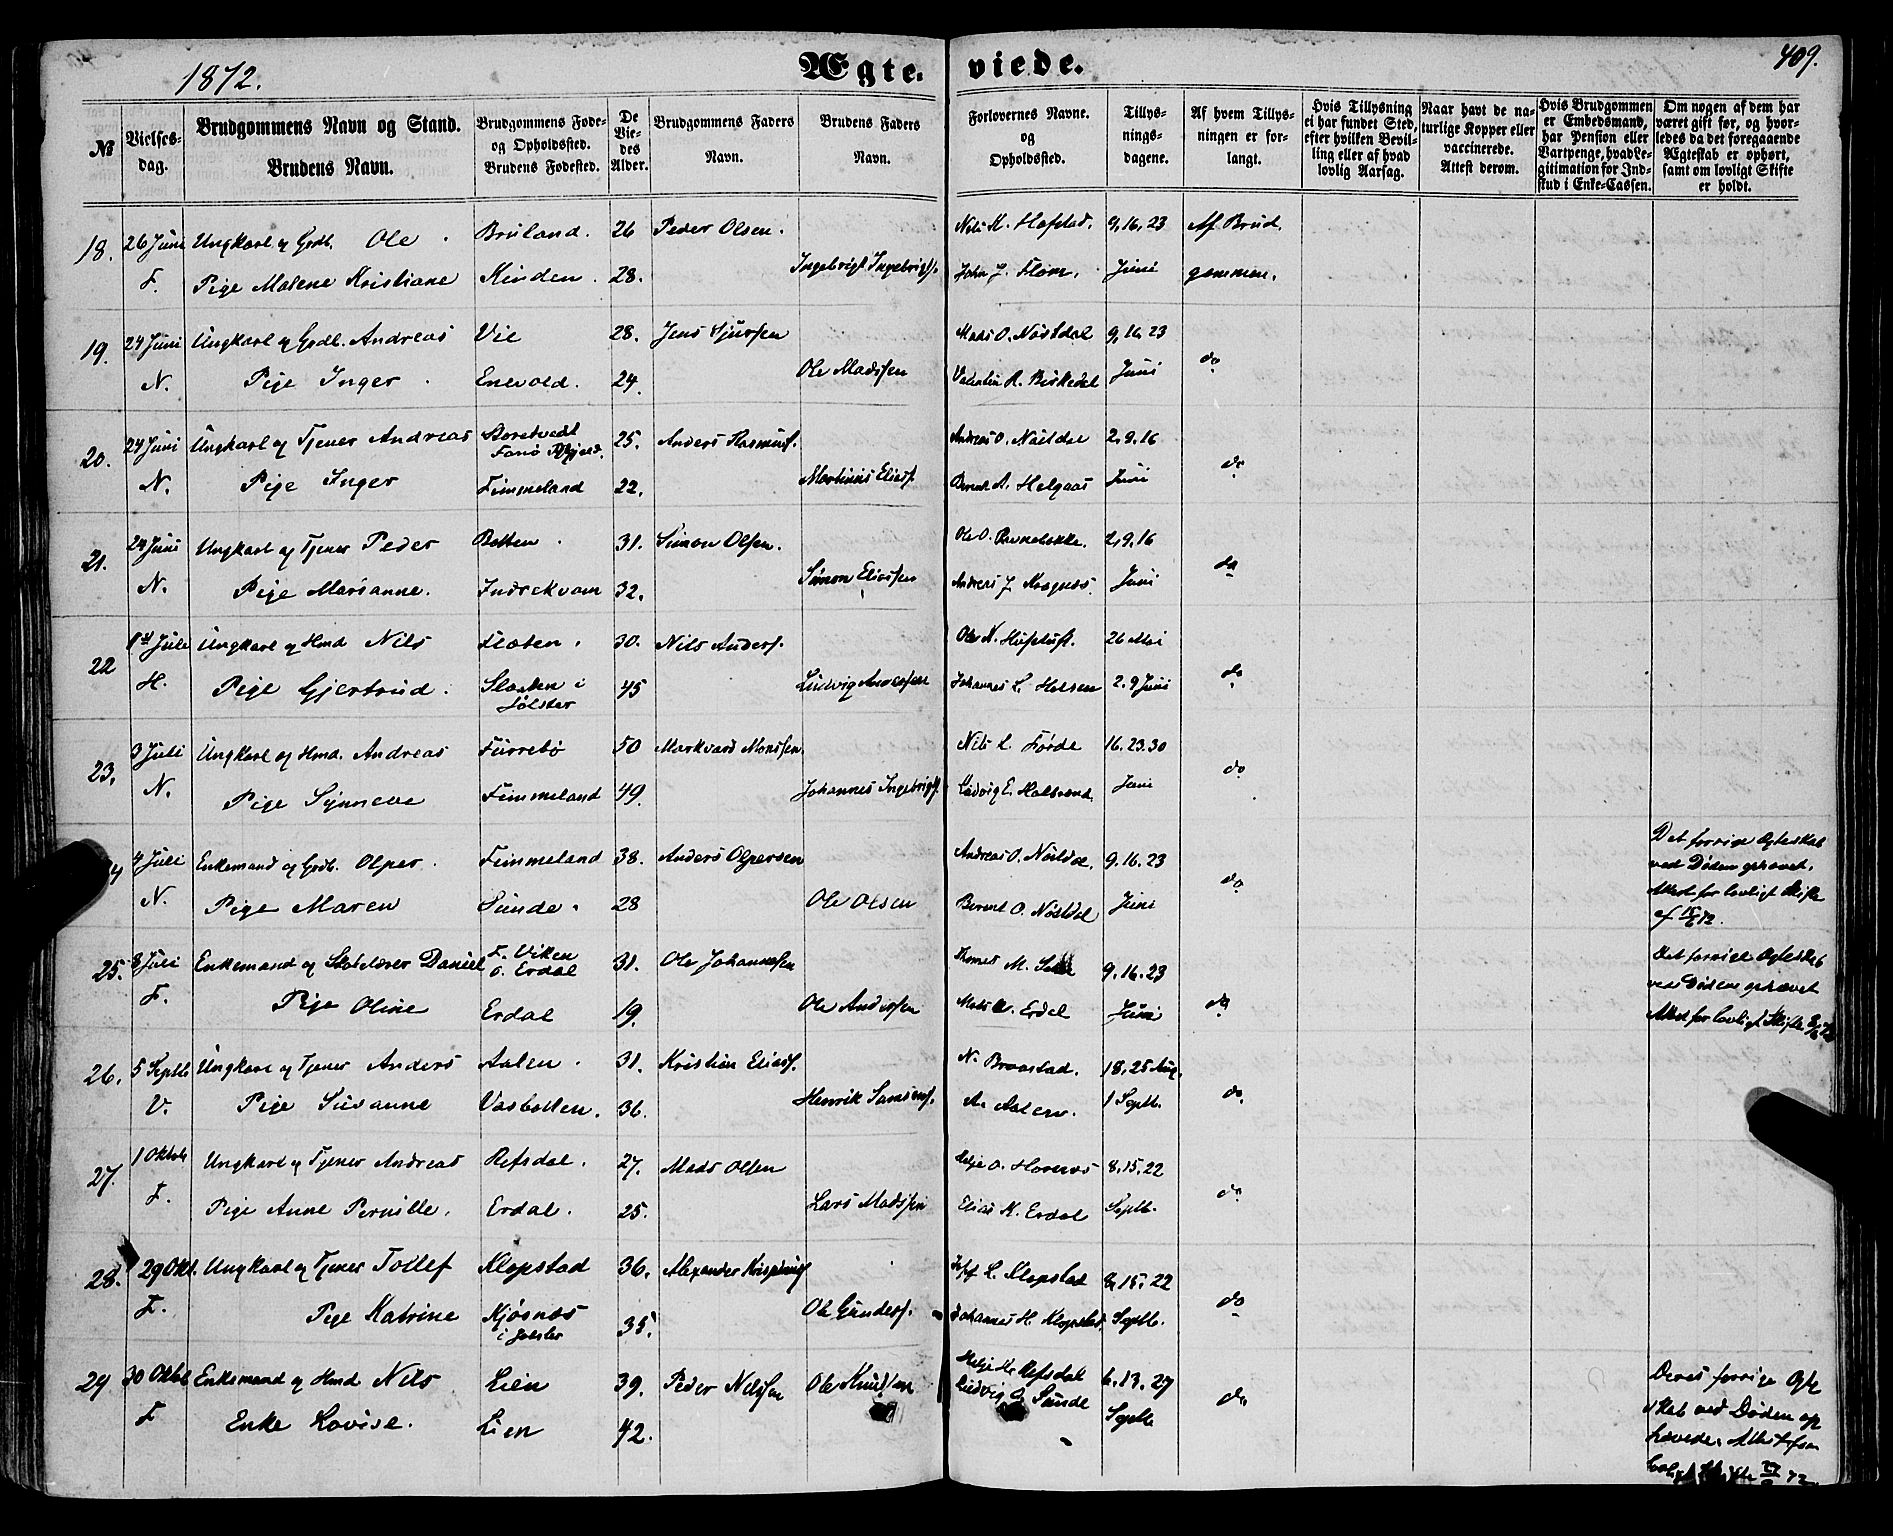 1872.
Ægte. viede.
409.
No
Vielses-dag.
Brudgommens Navn og Stand.
Brudens Navn.
Brudgommens Føde- og Opholdssted.
Brudens Fødested.
De Vie-des Alder.
Brudgommens Faders Navn.
Brudens Faders Navn.
Forlovernes Navne. og Opholdssted.
Tillys-nings-dagene.
Af hvem Tillys-ningen er for-langt.
Hvis Tillysning ei har fundet Sted, efter hvilken Bevil-ling eller af hvad lovlig Aarsag.
Naar havt de na-turlige Kopper eller vaccinerede. Attest derom.
Hvis Brudgommen er Embedsmand, har Pension eller Vartpenge, hvad Le-gitimation for Ind-skud i Enke-Cassen.
Om nogen af dem har været gift før, og hvor-ledes da det foregaaende Ægteskab er ophørt, samt om lovligt Skifte er holdt.
18. 26 Juni Ungkarl og Grdb. Ole Bruland. 26 Peder Olsen. Nils K. Hafstad. 9, 16, 23 Af Brud.
F. Pige Malene Kristiane Kinden. 28. Ingebrigt Ingebrigts. John J. Flom. Juni gommen.
19. 24 Juni Ungkarl og Grdb. Andreas Vie 28. Jens Sjursen Mads O. Nøstdal 9, 16, 23
N. Pige Inger Enevold. 24. Ole Madssen Valentin R. Birkedal Juni do
20. 24 Juni Ungkarl og Tjener Andreas 25. Anders Rasmuss. Andreas O. Nøstdal 2, 9, 16
N. Pige Inger Fimmeland 22. Martinus Eliass. Bernt A. Helgaas Juni do
21. 24 Juni Ungkarl og Tjener Peder Botten. 31. Simon Olsen. Ole O. 2, 9, 16
N. Pige Marianne. Indrekvam 32. Simon Eliassen Andreas J. Juni do
22 1st Juli Ungkarl og Hmd Nils Flaten. 30. Nils Anders. Ole N. Hufstuft. 26 Mai
H. Pige Gjertrud. Slaatten i Jølster 45 Ludvig Andersen Johannes L. Halsen 2. 9 Juni do
23. 3 Juli Ungkarl og Hmd. Andreas Furrebø 50 Markvard Monssen. Nils L. Førde 16. 23. 30
N. Pige Synneve Fimmeland 49. Johannes Ingebrigts. Ludvig E. Juni do
4 Juli Enkemand og Grdb. Olper. Fimmeland 38. Anders Olpersen Andreas O. Nøstdal. 9. 16. 23 Det forrige Ægteskab ved Døden ophævet. Attest for lovligt Skifte af
N. Pige Maren Sunde. 28 Ole Olsen Bernt O. Nøstdal Juni do
25. 8 Juli Enkemand og Skolelærer Daniel F. Viken O. Erdal 31. Ole Johannessen Thomas M. 9. 16. 23 Det forrige Ægteskab ved Døden ophævet
F. Pige Oline Erdal 19. Ole Anderssen Mads A. Erdal Juni do Attest for lovligt Skifte
26. 5 Septb Ungkarl og Tjener Anders Aalen. 31. Kristian Eliass. N. Braastad. 18, 25 Aug.
V. Pige Susanne Vasbotten. 36. Henrik Samsons. A. Aalen. 1 Septb. do
27. 1 Oktob Ungkarl og Tjener Andreas Refsdal. 27. Mads Olsen Helje O. Hovenæs 8, 15, 22
F. Pige Anne Pernille. Erdal. 25. Lars Madssen Elias K. Erdal Septb. do
28. 29 Okt. Ungkarl og Tjener Tollef Klopstad 36. Alexander L. Klopstad 8, 15, 22
F. Pige Katrine Kjøsnæs i Jølster 35. Ole Gunders. Johannes H. Klopstad. Septb. do
29 30 Oktb Enkemand og Hmd Nils Lien 39. Peder Nilssen Ole Knutsen Helje K. Refsdal 6. 13. 27 Deres forrige Ægte
F Enke Lovise. Lien 42. Ludvig O. Sunde Septb do skab ved Døden op
hævede. Attest for